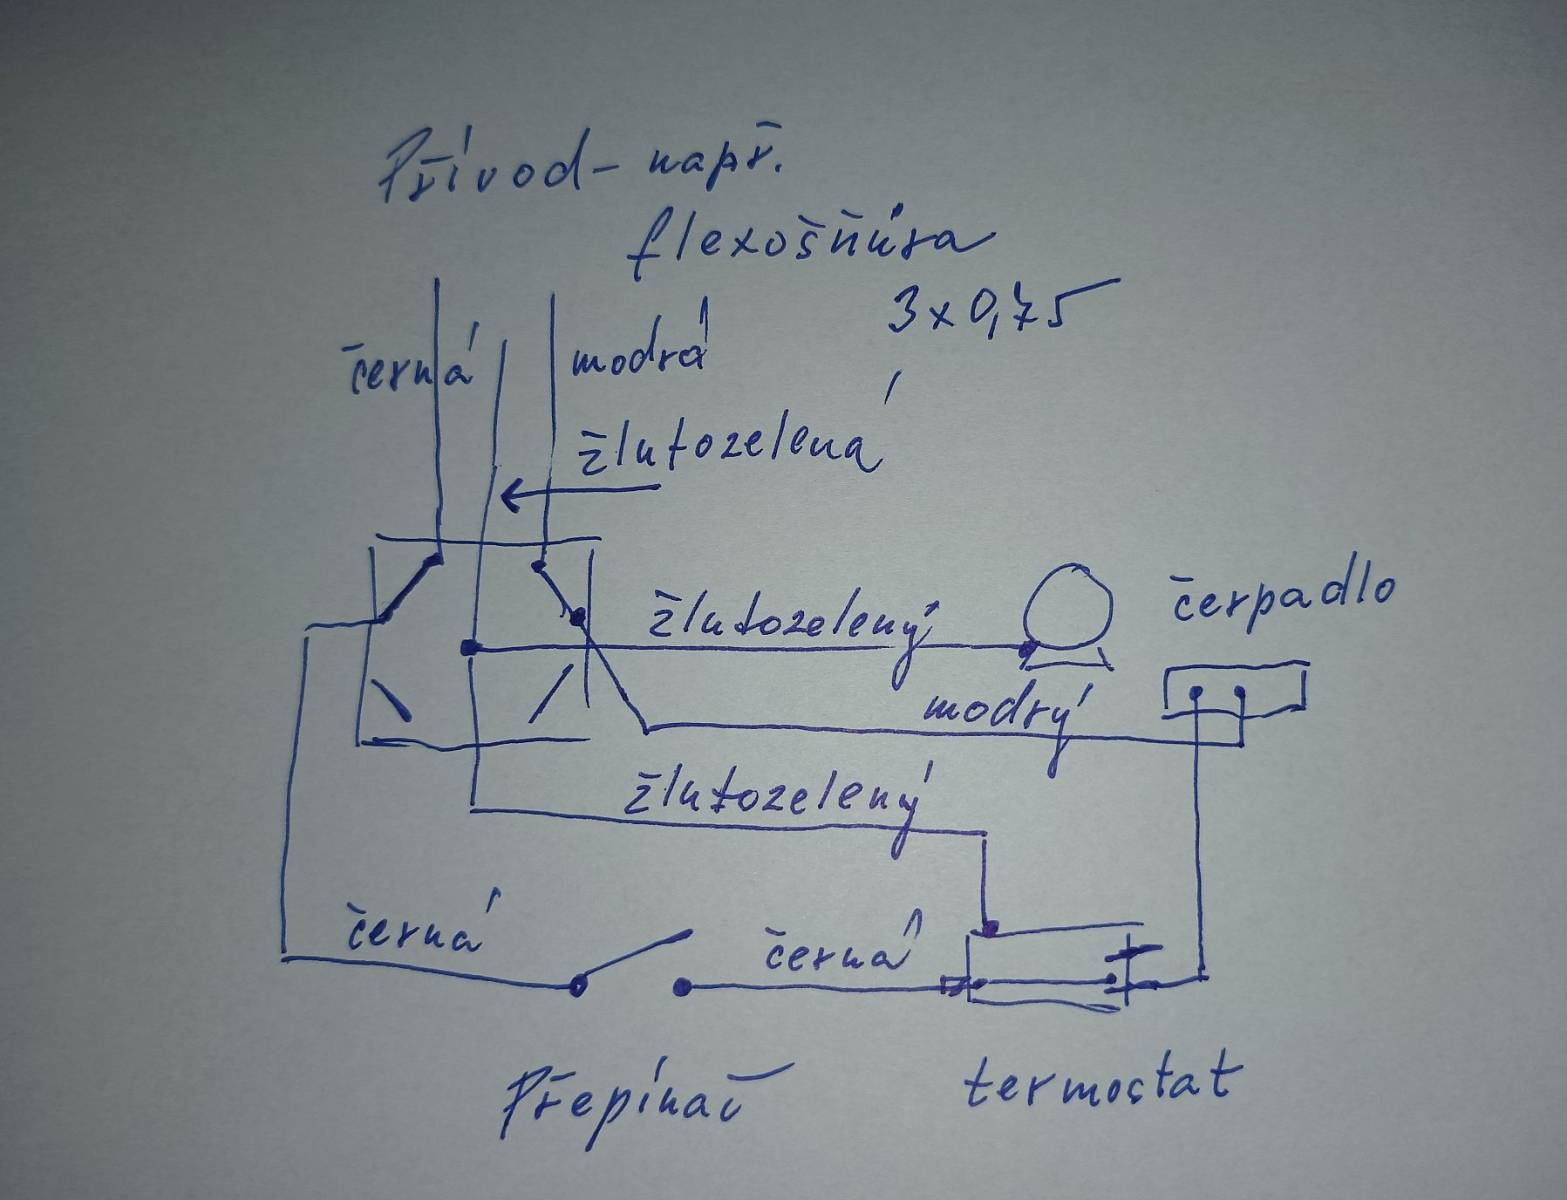 Přívod - např.
flexošňůra
3x0,75
černá
modrá
žlutozelená
žlutozelený
čerpadlo
modrý
žlutozelený
černá
černá
Přepínač
termostat